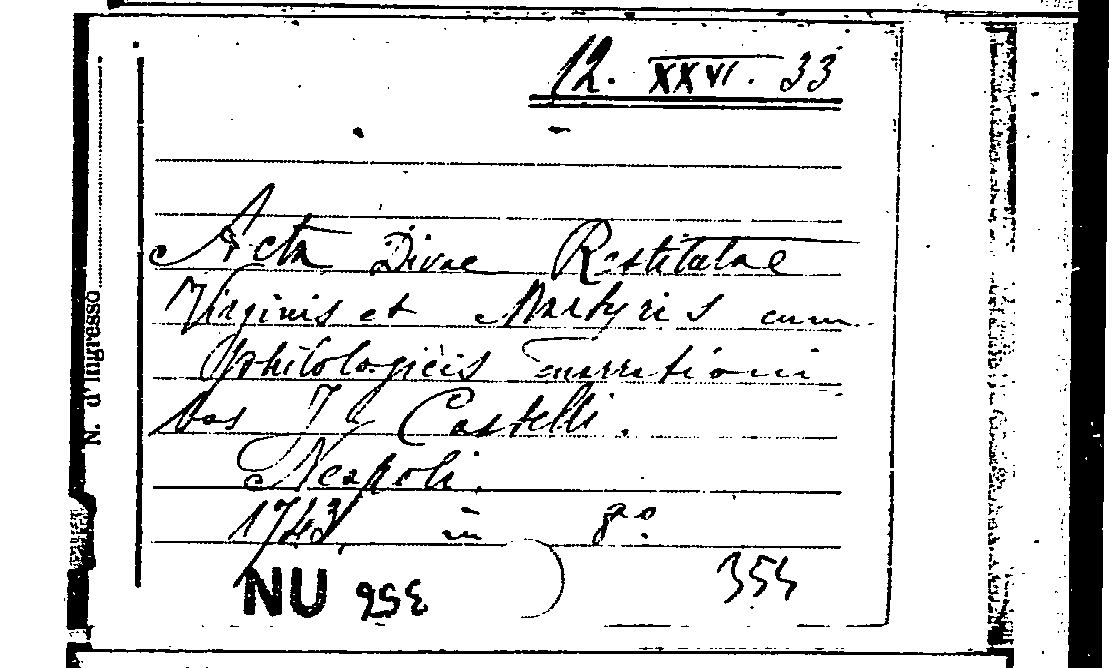 12. XXVI. 33
Acta Divae Restitutae
Virginis et Martyris cum
philologicis enarrationi
bus J Castelli.
Neapoli.
1743 in 8º
NU 
354
N. d'Ingresso